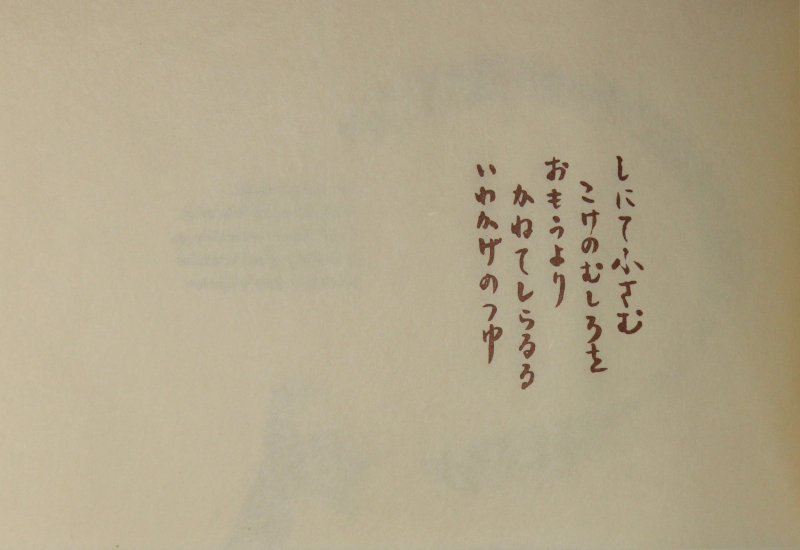 しにてふさむ
こけのむしろを
おもうより
かねてしらるる
いわかげのつゆ